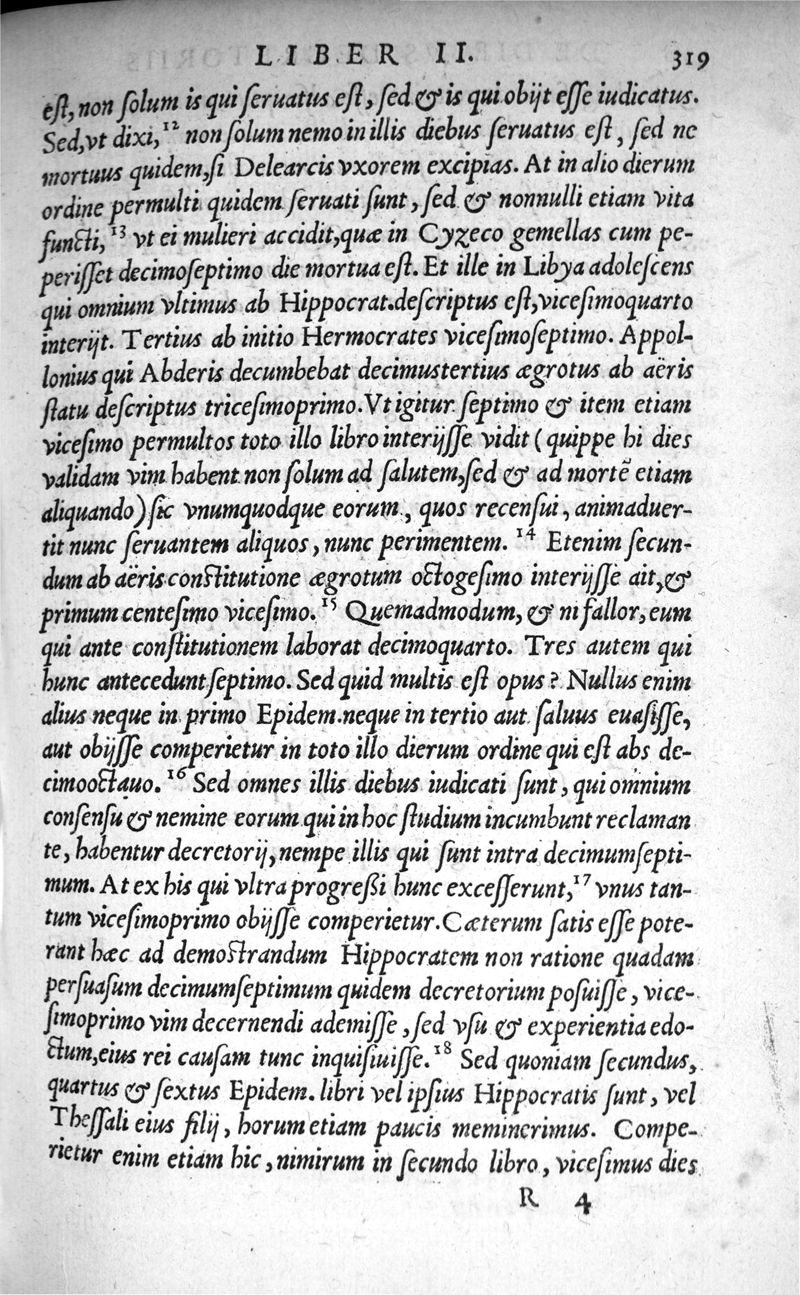 LIBER II. 319
est, non solum is qui seruatus est, sed & is qui obijt esse iudicatus.
Sed, vt dixi,¹² non solum nemo in illis diebus seruatus est, sed ne
mortuus quidem, si Delearcis vxorem excipias. At in alio dierum
ordine permulti quidem seruati sunt, sed & nonnulli etiam vita
functi,¹³ vt ei mulieri accidit, quæ in Cyzeco gemellas cum pe-
perisset decimoseptimo die mortua est. Et ille in Libya adolescens
qui omnium vltimus ab Hippocrat. descriptus est, vicesimoquarto
interijt. Tertius ab initio Hermocrates vicesimoseptimo. Appol-
lonius qui Abderis decumbebat decimustertius ægrotus ab aëris
statu descriptus tricesimoprimo. Vt igitur septimo & item etiam
vicesimo permultos toto illo libro interijsse vidit (quippe hi dies
validam vim habent non solum ad salutem, sed & ad mortē etiam
aliquando) sic vnumquodque eorum, quos recensui, animaduer-
tit nunc seruantem aliquos, nunc perimentem. ¹⁴ Etenim secun-
dum ab aëris constitutione ægrotum octogesimo interijsse ait, &
primum centesimo vicesimo.¹⁵ Quemadmodum, & ni fallor, eum
qui ante constitutionem laborat decimoquarto. Tres autem qui
hunc antecedunt septimo. Sed quid multis est opus? Nullus enim
alius neque in primo Epidem. neque in tertio aut saluus euasisse,
aut obijsse comperietur in toto illo dierum ordine qui est abs de-
cimooctauo.¹⁶ Sed omnes illis diebus iudicati sunt, qui omnium
consensu & nemine eorum qui in hoc studium incumbunt reclaman
te, habentur decretorij, nempe illis qui sunt intra decimumsepti-
mum. At ex his qui vltra progressi hunc excesserunt,¹⁷ vnus tan-
tum vicesimoprimo obijsse comperietur. Cæterum satis esse pote-
rant hæc ad demostrandum Hippocratem non ratione quadam
persuasum decimumseptimum quidem decretorium posuisse, vice-
simoprimo vim decernendi ademisse, sed vsu & experientia edo-
ctum, eius rei causam tunc inquisiuisse.¹⁸ Sed quoniam secundus,
quartus & sextus Epidem. libri vel ipsius Hippocratis sunt, vel
Thessali eius filij, horum etiam paucis meminerimus. Compe-
rietur enim etiam hic, nimirum in secundo libro, vicesimus dies
R 4